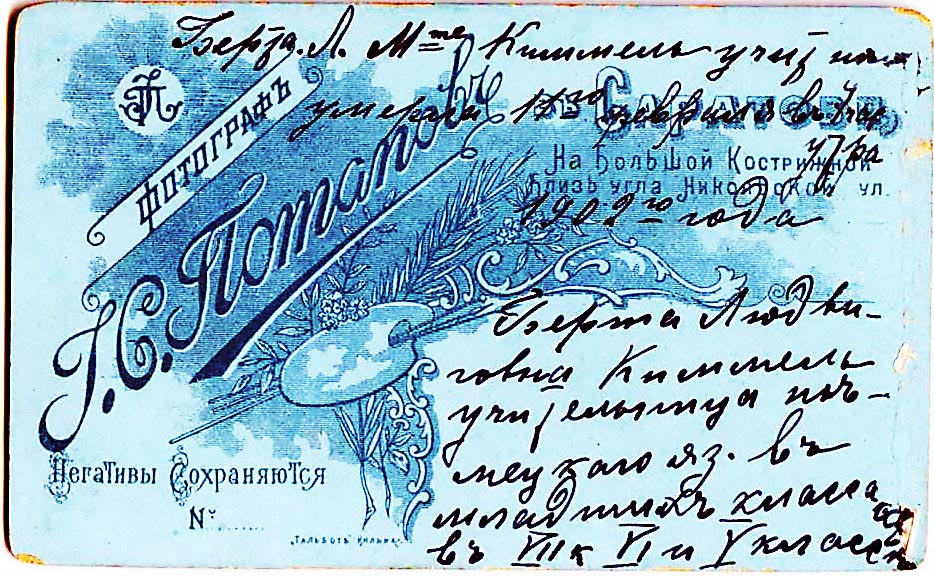 Берта Л. Мте Киммель учит.
умерла 11го февраля въ 7 час.
утра
1902го года
ФОТОГРАФЪ
І. С. Потаповъ
въ Саратовѣ,
На Большой Кострижной
близь угла Никольской ул.
Берта Людви-
говна Киммель
учительница нѣ-
мецкаго яз. въ
младшихъ класса
въ VII к VI и V класс
Негативы Сохраняются
№
ТАЛЬБОТЪ ВИЛЬНА